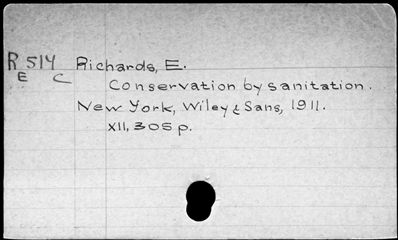 R 514 Richards, E.
E C Conservation by sanitation.
New York, Wiley & Sans, 1911.
XII, 305 p.